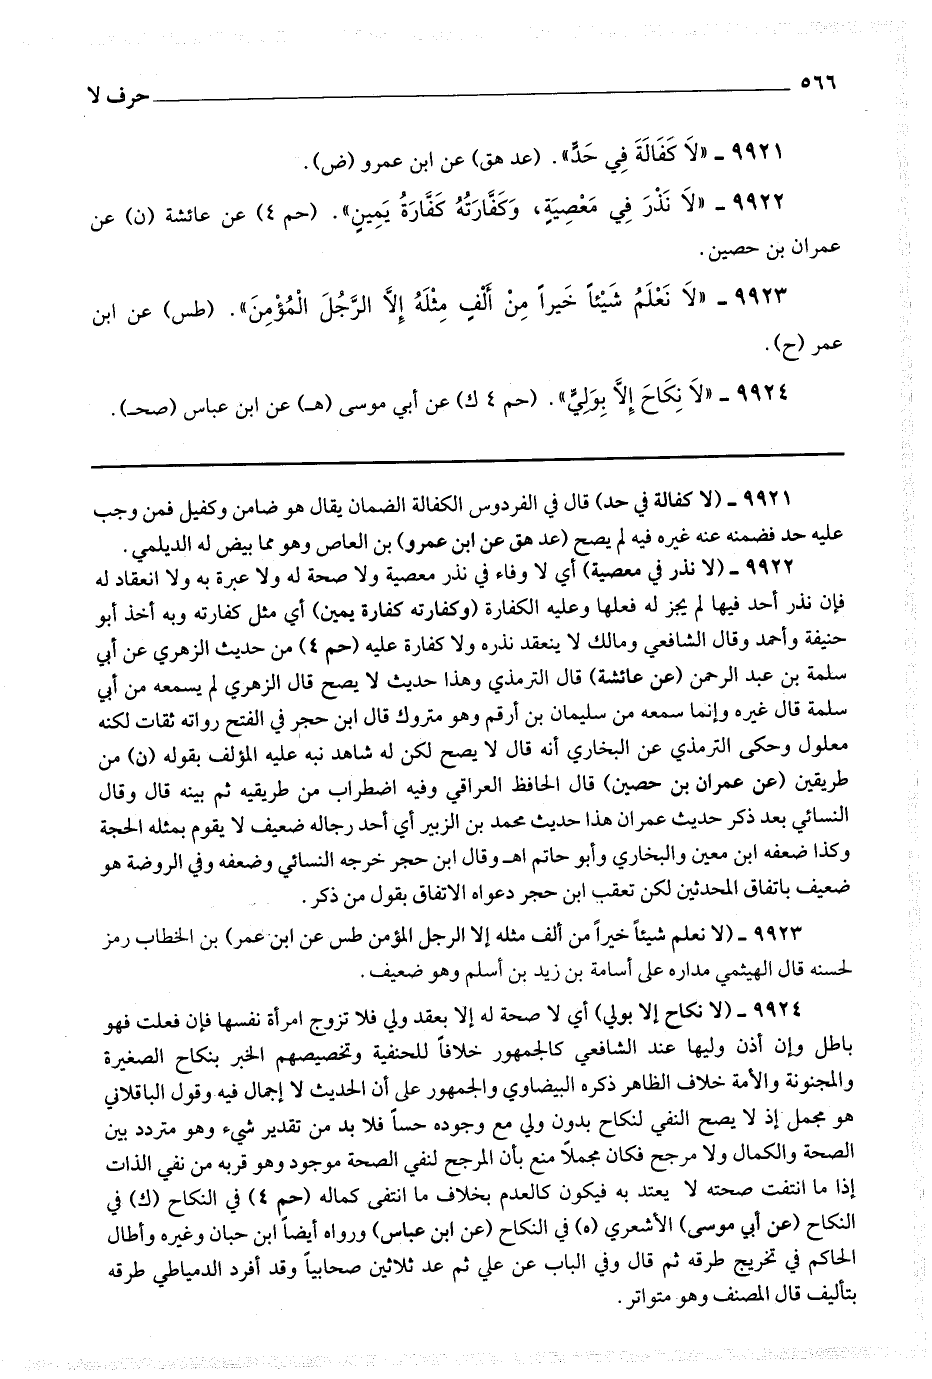 ٥٦٦ حرف لا
٩٩٢١ ـ «لاَ كَفَالَةَ فِي حَدٍّ». (عد هق) عن ابن عمرو (ض).
٩٩٢٢ ـ «لاَ نَذْرَ فِي مَعْصِيَةٍ، وَكَفَّارَتُهُ كَفَّارَةُ يَمِينٍ». (حم ٤) عن عائشة (ن) عن
عمران بن حصين.
٩٩٢٣ ـ «لاَ نَعْلَمُ شَيْئاً خَيراً مِنْ أَلْفٍ مِثْلَهُ إِلاَّ الرَّجُلَ الْمُؤْمِنَ». (طس) عن ابن
عمر (ح).
٩٩٢٤ ـ «لاَ نِكَاحَ إِلاَّ بِوَلِيٍّ». (حم ٤ ك) عن أبي موسى (هـ) عن ابن عباس (صحـ).
٩٩٢١ ـ (لا كفالة في حد) قال في الفردوس الكفالة الضمان يقال هو ضامن وكفيل فمن وجب
عليه حد فضمنه عنه غيره فيه لم يصح (عد هق عن ابن عمرو) بن العاص وهو مما بيض له الديلمي.
٩٩٢٢ ـ (لا نذر في معصية) أي لا وفاء في نذر معصية ولا صحة له ولا عبرة به ولا انعقاد له
فإن نذر أحد فيها لم يجز له فعلها وعليه الكفارة (وكفارته كفارة يمين) أي مثل كفارته وبه أخذ أبو
حنيفة وأحمد وقال الشافعي ومالك لا ينعقد نذره ولا كفارة عليه (حم ٤) من حديث الزهري عن أبي
سلمة بن عبد الرحمن (عن عائشة) قال الترمذي وهذا حديث لا يصح قال الزهري لم يسمعه من أبي
سلمة قال غيره وإنما سمعه من سليمان بن أرقم وهو متروك قال ابن حجر في الفتح رواته ثقات لكنه
معلول وحكى الترمذي عن البخاري أنه قال لا يصح لكن له شاهد نبه عليه المؤلف بقوله (ن) من
طريقين (عن عمران بن حصين) قال الحافظ العراقي وفيه اضطراب من طريقيه ثم بينه قال وقال
النسائي بعد ذكر حديث عمران هذا حديث محمد بن الزبير أي أحد رجاله ضعيف لا يقوم بمثله الحجة
وكذا ضعفه ابن معين والبخاري وأبو حاتم اهـ وقال ابن حجر خرجه النسائي وضعفه وفي الروضة هو
ضعيف باتفاق المحدثين لكن تعقب ابن حجر دعواه الاتفاق بقول من ذكر.
٩٩٢٣ ـ (لا نعلم شيئاً خيراً من ألف مثله إلا الرجل المؤمن طس عن ابن عمر) بن الخطاب رمز
لحسنه قال الهيثمي مداره على أسامة بن زيد بن أسلم وهو ضعيف.
٩٩٢٤ ـ (لا نكاح إلا بولي) أي لا صحة له إلا بعقد ولي فلا تزوج امرأة نفسها فإن فعلت فهو
باطل وإن أذن وليها عند الشافعي كالجمهور خلافاً للحنفية وتخصيصهم الخبر بنكاح الصغيرة
والمجنونة والأمة خلاف الظاهر ذكره البيضاوي والجمهور على أن الحديث لا إجمال فيه وقول الباقلاني
هو مجمل إذ لا يصح النفي لنكاح بدون ولي مع وجوده حساً فلا بد من تقدير شيء وهو متردد بين
الصحة والكمال ولا مرجح فكان مجملاً منع بأن المرجح لنفي الصحة موجود وهو قربه من نفي الذات
إذا ما انتفت صحته لا يعتد به فيكون كالعدم بخلاف ما انتفى كماله (حم ٤) في النكاح (ك) في
النكاح (عن أبي موسى) الأشعري (ه) في النكاح (عن ابن عباس) ورواه أيضاً ابن حبان وغيره وأطال
الحاكم في تخريج طرقه ثم قال وفي الباب عن علي ثم عد ثلاثين صحابياً وقد أفرد الدمياطي طرقه
بتأليف قال المصنف وهو متواتر.